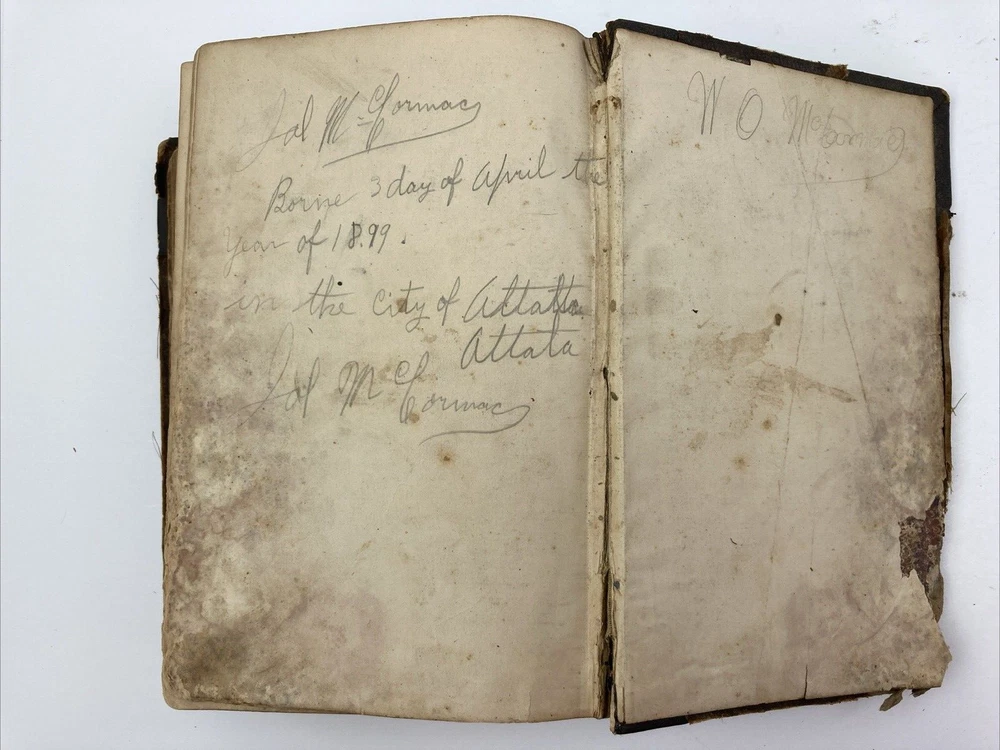 Jal McCormac
Borne 3 day of April the
year of 18.99.
in the City of Attatta
Attata
Jal McCormac
W O McCormac